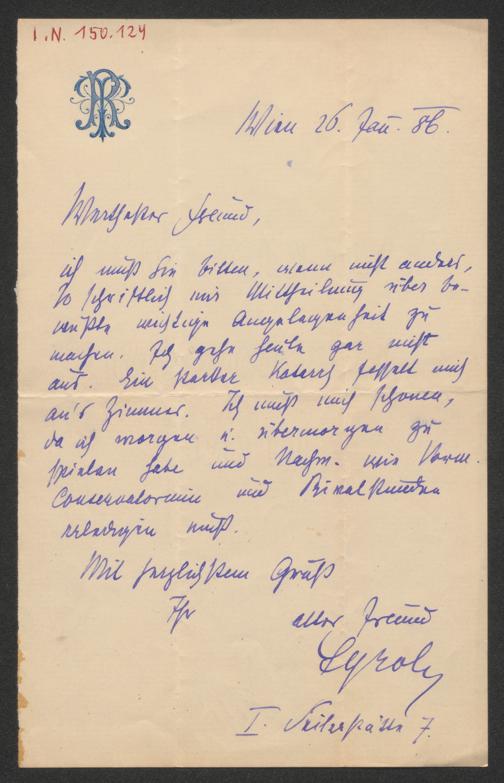 I.N. 150.124
Wien 26. Jan. 86.
Werthester Freund,
ich muß Sie bitten, wenn nicht anders,
so schriftlich mir Mittheilung über be-
wußte wichtige Angelegenheit zu
machen. Ich gehe heute gar nicht
aus. Ein starker Katarrh fesselt mich
an's Zimmer. Ich muß mich schonen,
da ich morgen u. übermorgen zu
spielen habe und Nachm. wie Vorm.
Conservatorium und Privatstunden
erledigen muß.
Mit herzlichstem Gruß
Ihr alter Freund
I. Seilerstätte 7.